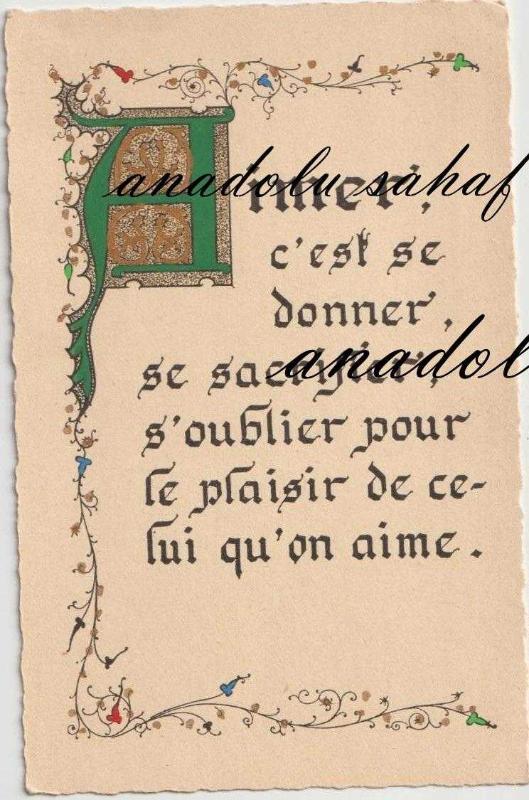 Aimer,
c'est se
donner,
se sacrifier,
s'oublier pour
le plaisir de ce-
lui qu'on aime.
anadolu sahaf
anadol